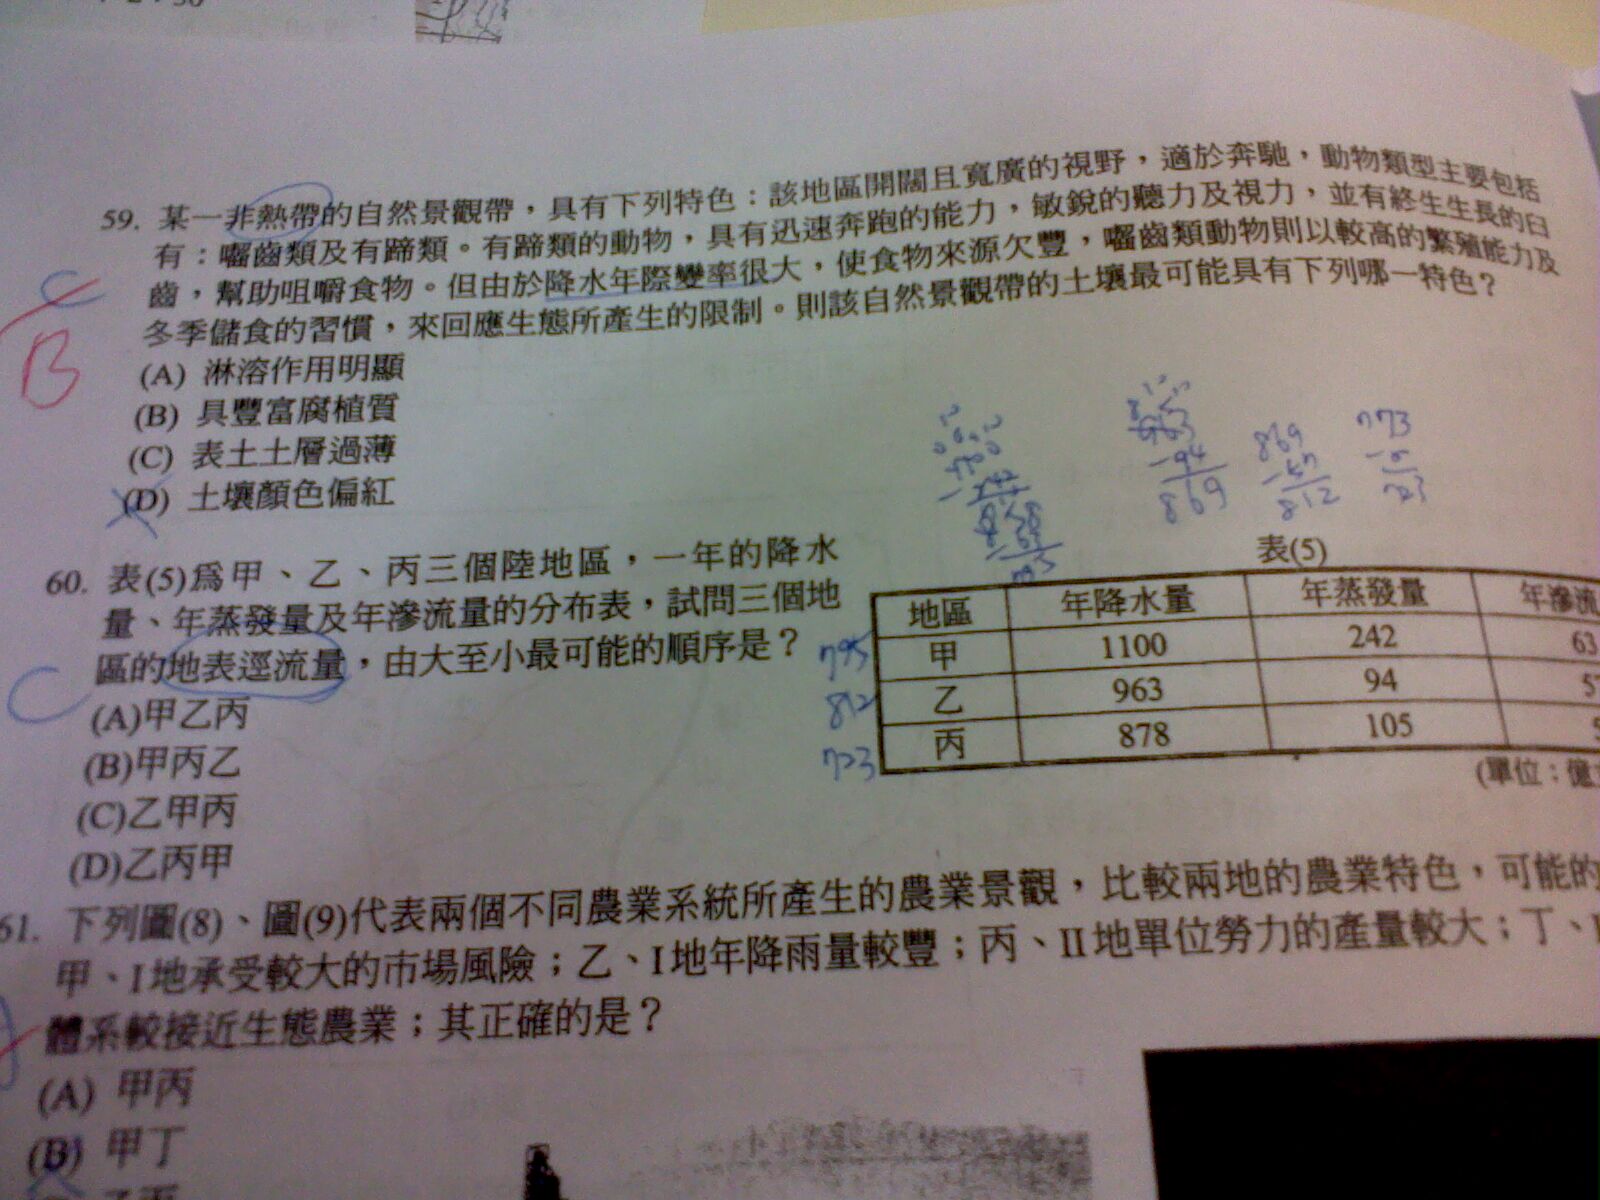 59. 某一非熱帶的自然景觀帶，具有下列特色：該地區開闊且寬廣的視野，適於奔馳，動物類型主要包括
有：囓齒類及有蹄類。有蹄類的動物，具有迅速奔跑的能力，敏銳的聽力及視力，並有終生生長的臼
齒，幫助咀嚼食物。但由於降水年際變率很大，使食物來源欠豐，囓齒類動物則以較高的繁殖能力及
冬季儲食的習慣，來回應生態所產生的限制。則該自然景觀帶的土壤最可能具有下列哪一特色？
C
B
(A) 淋溶作用明顯
(B) 具豐富腐植質
(C) 表土土層過薄
(D) 土壤顏色偏紅
194
869
869
812
773
723
60. 表(5)為甲、乙、丙三個陸地區，一年的降水
量、年蒸發量及年滲流量的分布表，試問三個地
區的地表逕流量，由大至小最可能的順序是？
C
(A)甲乙丙
(B)甲丙乙
(C)乙甲丙
(D)乙丙甲
表(5)
地區 年降水量 年蒸發量 年滲流
795 甲 1100 242 63
812 乙 963 94 57
723 丙 878 105 5
(單位：億
61. 下列圖(8)、圖(9)代表兩個不同農業系統所產生的農業景觀，比較兩地的農業特色，可能的
甲、I地承受較大的市場風險；乙、I地年降雨量較豐；丙、II地單位勞力的產量較大；丁、I
體系較接近生態農業；其正確的是？
(A) 甲丙
(B) 甲丁